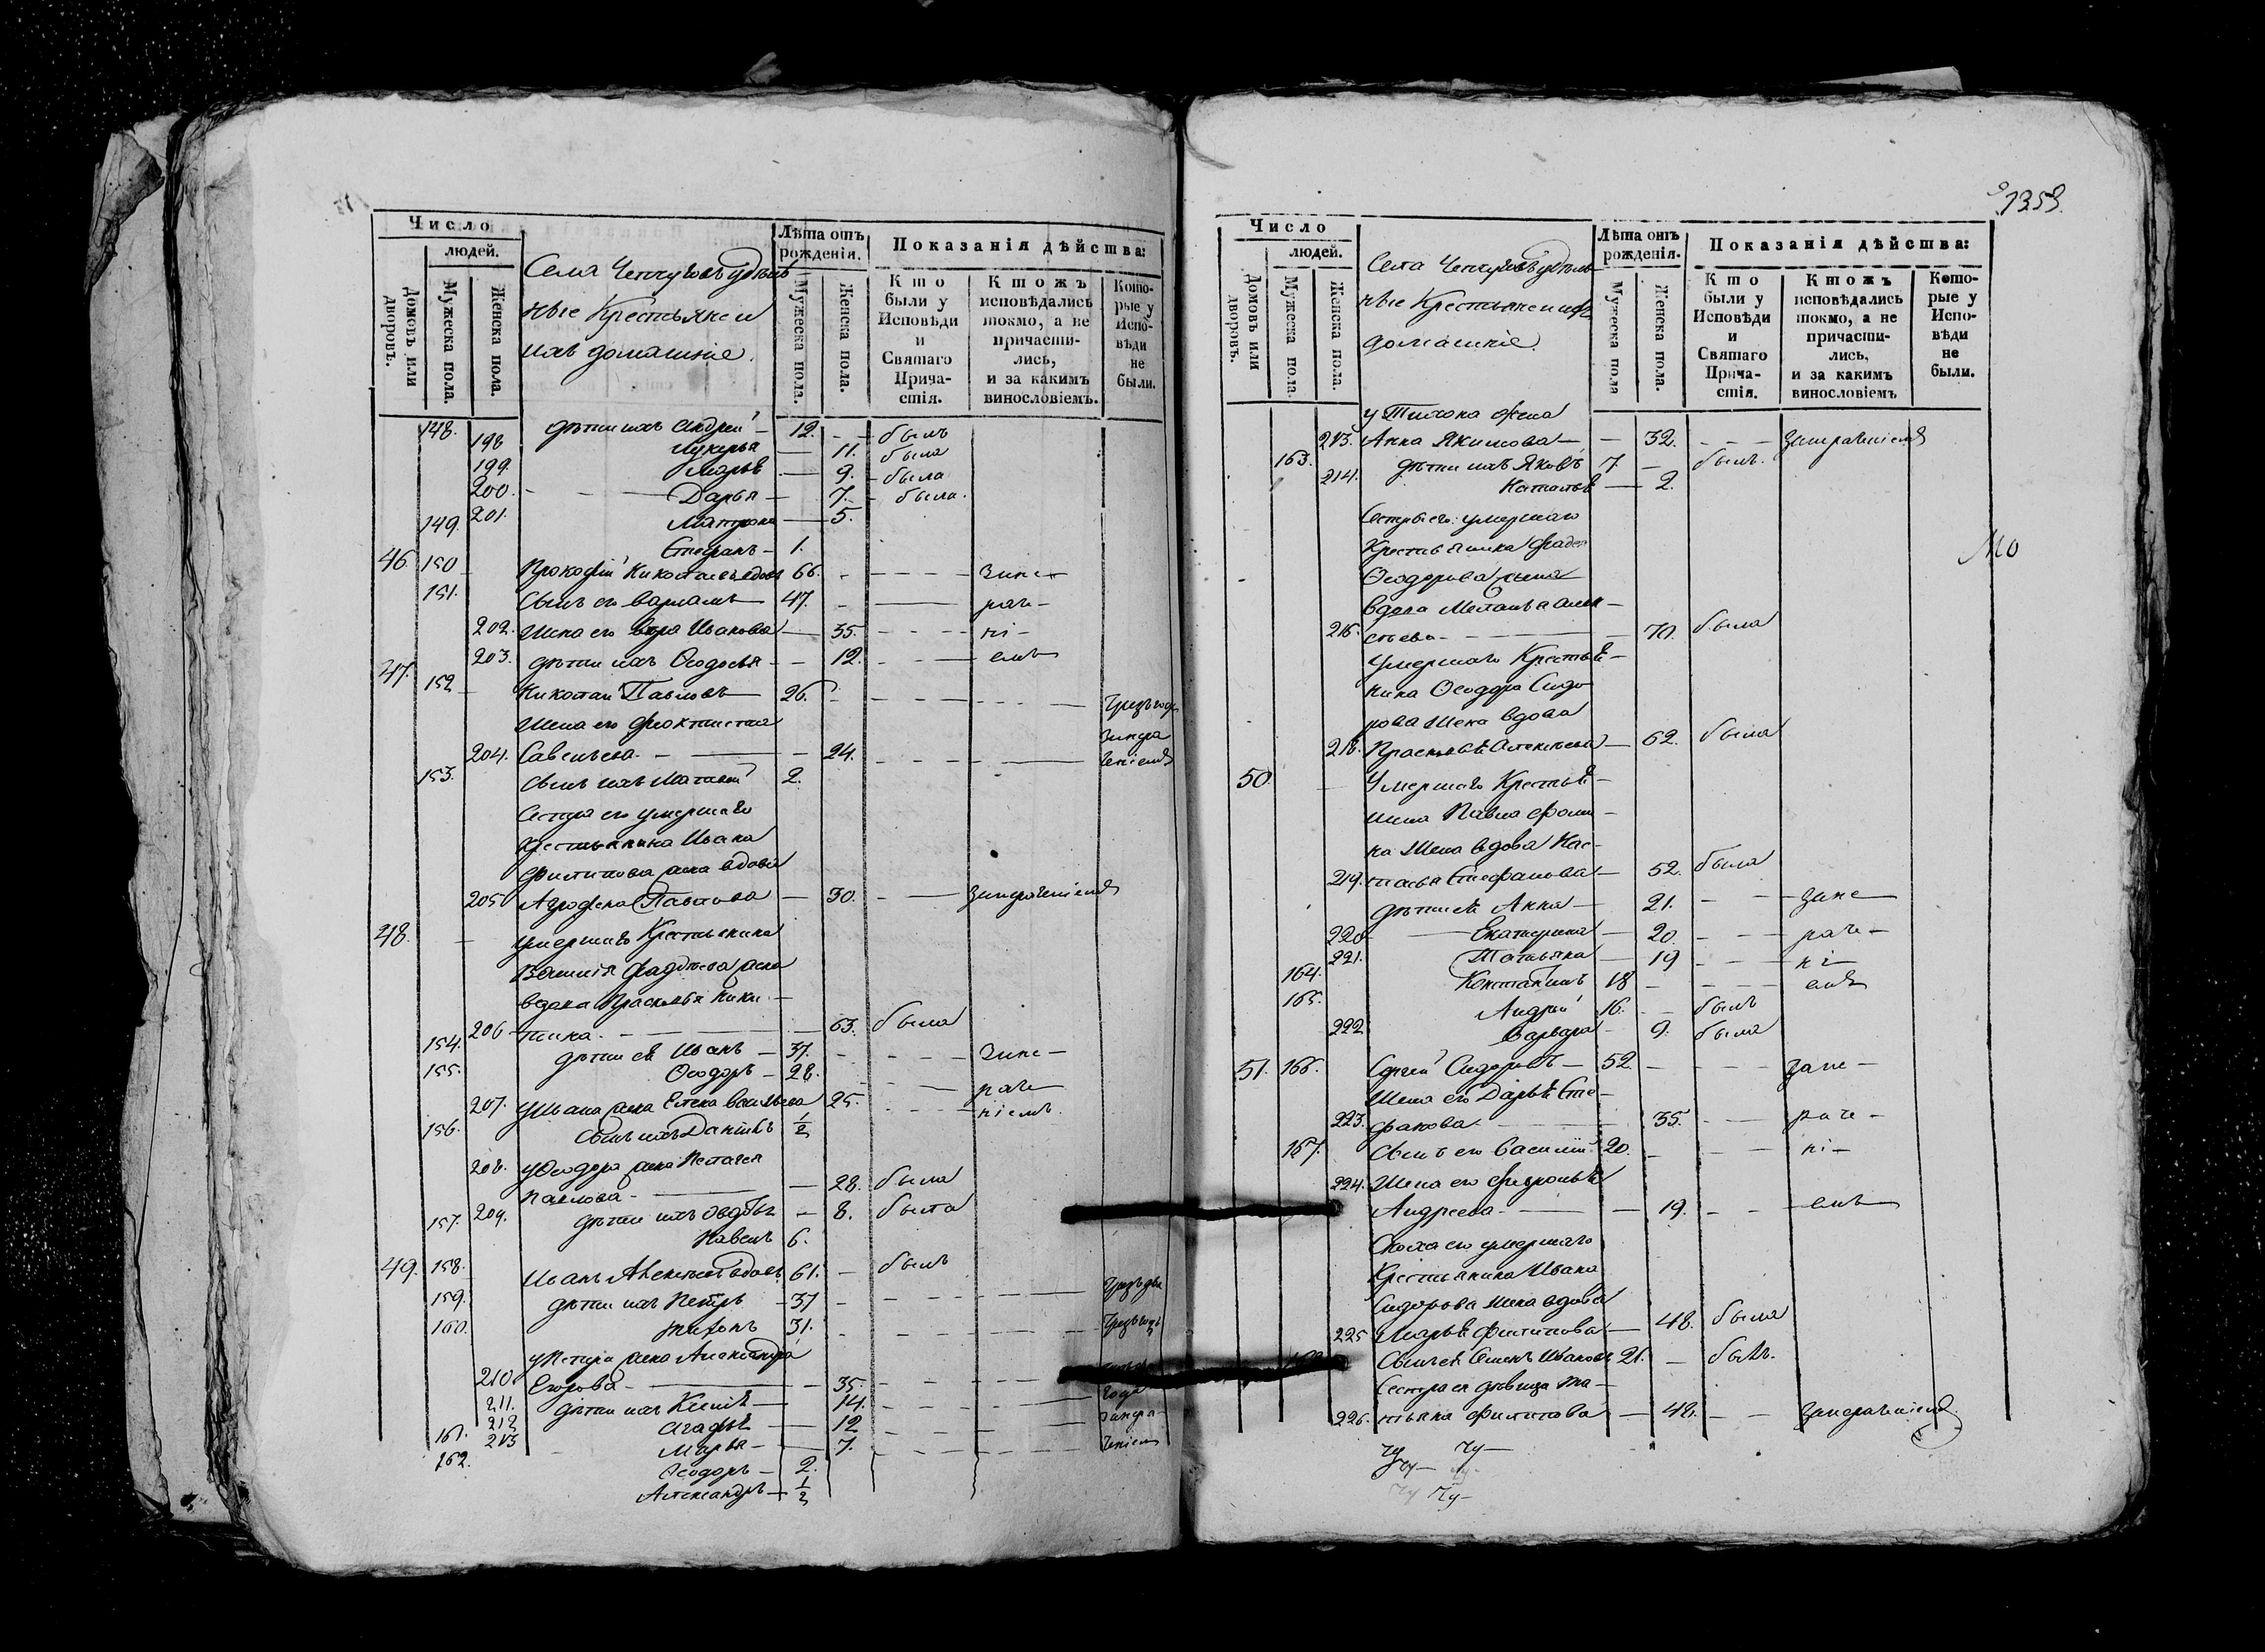 Число
людей.
Домовъ или дворовъ.
Мужеска пола.
Женска пола.
Села удѣль-
ные Крестьяне и
ихъ домашніе.
Лѣта отъ рожденія.
Мужеска пола.
Женска пола.
Показанія дѣйства:
Кто были у Исповѣди и Святаго Причастія.
Ктожъ исповѣдались токмо, а не причастились, и за какимъ винословіемъ.
Которые у Исповѣди не были.
148. дѣти ихъ Андрей 12. былъ
198 Лукерья 11. была
199. Марья 9. была
200. Дарья 7. была.
201. Матрона 5.
149. Стефанъ 1.
46. 150 Прокофій вдовъ 66. Зане-
151. Сынъ его Варламъ 47. раче-
202. Жена его Вера Иванова 35. ні-
203. дѣти ихъ Ѳеодосья 12. емъ
47. 152 Николай Павловъ 26.
Жена его Феоктиста
204. Савельева 24. ченіемъ
153. Сынъ ихъ Матвей 2.
Сестра его умершаго
Крестьянина Ивана
Филипова жена вдова
205 Агрофена Павлова 30. Занерачениемъ
48. умершаго Крестьянина
Фадѣева жена
вдова Прасковья Ники-
206 тина. 63. была
154. дѣти ея Иванъ 37. Зане-
155. Ѳеодоръ 28.
207. у Ивана жена Елена Васильева 25. раче-
156. Сынъ ихъ Данiилъ 1/2 ніемъ.
208. у Ѳеодора жена Пелагея
Павлова 28. была
209. дѣти ихъ 8. была
157. Павелъ 6.
49. 158. Иванъ Алексѣевъ вдовъ 61. былъ
159. дѣти ихъ Петръ 37
160. Тихонъ 31.
у Петра жена Александра
210. Егорова 35. года
211. дѣти ихъ 14.
212 Агафья 12
213 Марья 7. ченіем
161. Ѳеодоръ 2.
162. Александръ 1/2
1353.
Число
людей.
Домовъ или дворовъ.
Мужеска пола.
Женска пола.
Села удѣль-
ные Крестьяне и ихъ
домашніе.
Лѣта отъ рожденія.
Мужеска пола
Женска пола.
Показанія дѣйства:
Кто были у Исповѣди и Святаго Причастія.
Ктожъ исповѣдались токмо, а не причастились, и за какимъ винословіемъ
Которые у Исповѣди не были.
у Тихона жена
213. Анна Якимова 32. Занераченіемъ
163. дѣти ихъ Яковъ 7. былъ.
214. Наталья 2.
умершаго
Крестьянина
Ѳеодорова
вдова
216. 70. была
умершаго Крестья-
нина Ѳеодора Сидо-
рова жена вдова
218. Прасковья Алексѣева 62. была
50 Умершаго Крестья-
нина Павла Фоми-
на жена вдова Нас-
219. тасья Стефанова 52. была
дѣти ея Анна 21. Зане
220 Екатерина 20. раче-
221. Татьяна 19 ні-
164. Константинъ 18 емъ
165. Андрей 16. былъ
222 Варвара 9. была
51. 166. Сергей Сидоровъ 52. Зане-
Жена его Дарья Сте-
223. фанова 35. раче-
167. Сынъ его Василій 20. ні-
224. Жена его Февронья
Андреева 19. емъ
Сноха его умершаго
Крестьянина Ивана
Сидорова жена вдова
225 Марья Филипова 48. была
Сынъ ея Семенъ Ивановъ 21. былъ.
Сестра ея девица Та-
226. тьяна Филипова 42. Занераченіемъ